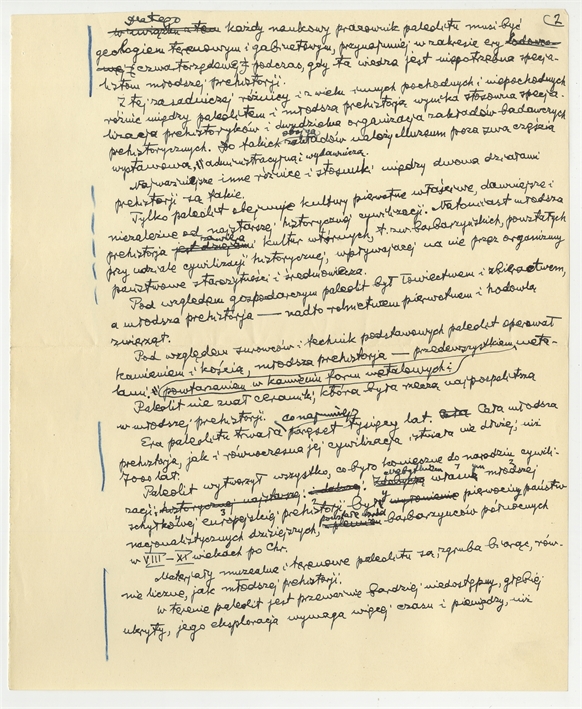 (2
dlatego
w związku z tem każdy naukowy pracownik paleolitu musi być
geologiem terenowym i gabinetowym, przynajmniej w zakresie ery lodowco-
wej i czwartorzędowej podczas, gdy ta wiedza jest niepotrzebna specja-
listom młodszej prehistorji.
Z tej zasadniczej różnicy i z wielu innych pochodnych i niepochodnych
różnic między paleolitem i młodszą prehistorją wynika stosowna specja-
lizacja prehistoryków i dwudzielna organizacja zakładów badawczych
prehistorycznych. Do takich zakładów należy Muzeum poza swą częścią
wystawową, administracyjną i wydawniczą.
Najważniejsze inne różnice i stosunki między dwoma działami
prehistorji są takie.
Tylko paleolit obejmuje kultury pierwotne właściwe, dawniejsze i
niezależne od najstarszej historycznej cywilizacji. Natomiast młodsza
prehistorja jest kultur wtórnych, t. zw. barbarzyńskich, powstałych
przy udziale cywilizacji historycznej, wpływającej na nie przez organizmy
państwowe starożytności i średniowiecza.
Pod względem gospodarczym paleolit był łowiectwem i zbieractwem,
a młodsza prehistorja — nadto rolnictwem pierwotnem i hodowlą
zwierząt.
Pod względem surowców i technik podstawowych paleolit operował
kamieniem i kością, młodsza prehistorja — przedewszystkiem meta-
lami i powtarzaniem w kamieniu form metalowych.
Paleolit nie znał ceramiki, która była rzeczą najpospolitszą
w młodszej prehistorji.
co najmniej
Era paleolitu trwała paręset tysięcy lat. Cała młodsza
prehistorja, jak i równoczesna jej cywilizacja istniała nie dłużej, niż
7000 lat.
Paleolit wytworzył wszystko, co było konieczne do narodzin cywili-
zacji historycznej najstarszej, własną młodszej
schyłkowej europejskiej prehistorji było pierwociny państw
nacjonalistycznych dzisiejszych, barbarzyńców północnych
w VIII – XI wiekach po Chr.
Materjały muzealne i terenowe paleolitu są, zgruba biorąc, rów-
nie liczne, jak młodszej prehistorji.
W terenie paleolit jest przeważnie bardziej niedostępny, głębiej
ukryty, jego eksploracja wymaga więcej czasu i pieniędzy, niż